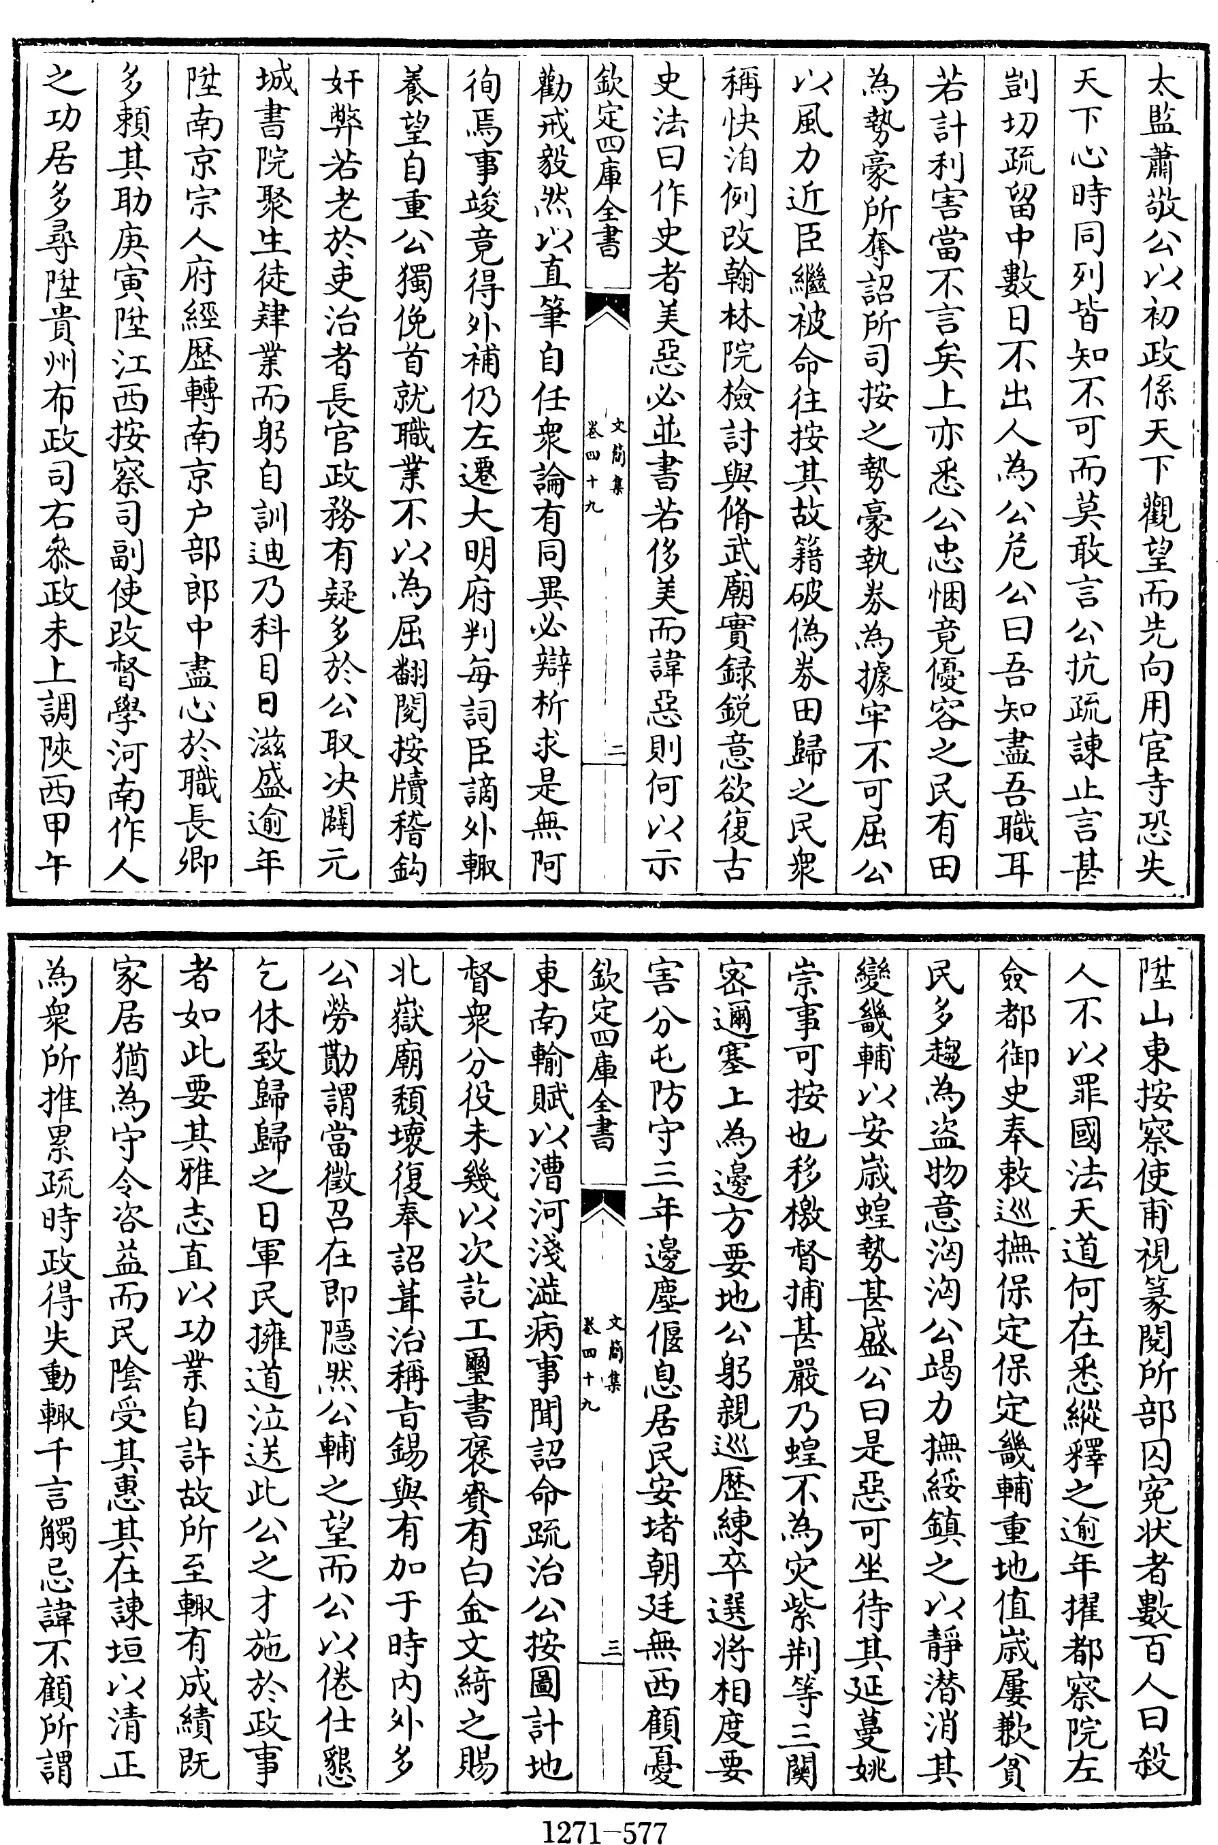 太監蕭敬公以初政係天下觀望而先向用宦寺恐失
天下心時同列皆知不可而莫敢言公抗疏諫止言甚
剴切疏留中數日不出人為公危公曰吾知盡吾職耳
若計利害當不言矣上亦悉公忠悃竟優容之民有田
為勢豪所奪詔所司按之勢豪執券為據牢不可屈公
以風力近臣繼被命往按其故籍破偽券田歸之民衆
稱快洎例改翰林院檢討與脩武廟實録銳意欲復古
史法曰作史者美惡必並書若侈美而諱惡則何以示
欽定四庫全書
文簡集
卷四十九
二
勸戒毅然以直筆自任衆論有同異必辯析求是無阿
徇焉事竣竟得外補仍左遷大明府判每詞臣謫外輙
養望自重公獨俛首就職業不以為屈翻閱按牘稽鈎
奸弊若老於吏治者長官政務有疑多於公取决闢元
城書院聚生徒肄業而躬自訓迪乃科目日滋盛逾年
陞南京宗人府經歷轉南京户部郎中盡心於職長卿
多賴其助庚寅陞江西按察司副使改督學河南作人
之功居多尋陞貴州布政司右叅政未上調陜西甲午
陞山東按察使甫視篆閱所部囚寃状者數百人曰殺
人不以罪國法天道何在悉縱釋之逾年擢都察院左
僉都御史奉敕巡撫保定保定畿輔重地值嵗屢歉貧
民多趨為盗物意洶洶公竭力撫綏鎮之以靜潜消其
變畿輔以安嵗蝗勢甚盛公曰是惡可坐待其延蔓姚
崇事可按也移檄督捕甚嚴乃蝗不為灾紫荆等三關
宻邇塞上為邊方要地公躬親巡歷練卒選将相度要
害分屯防守三年邊塵偃息居民安堵朝廷無西顧憂
欽定四庫全書
文簡集
卷四十九
三
東南輸賦以漕河淺澁病事聞詔命疏治公按圖計地
督衆分役未幾以次訖工璽書褒賚有白金文綺之賜
北嶽廟頽壞復奉詔葺治稱㫖錫與有加于時内外多
公勞勚謂當徵召在即隱然公輔之望而公以倦仕懇
乞休致歸歸之日軍民擁道泣送此公之才施於政事
者如此要其雅志直以功業自許故所至輙有成績既
家居猶為守令咨益而民陰受其惠其在諫垣以清正
為衆所推累疏時政得失動輙千言觸忌諱不顧所謂
1271-577